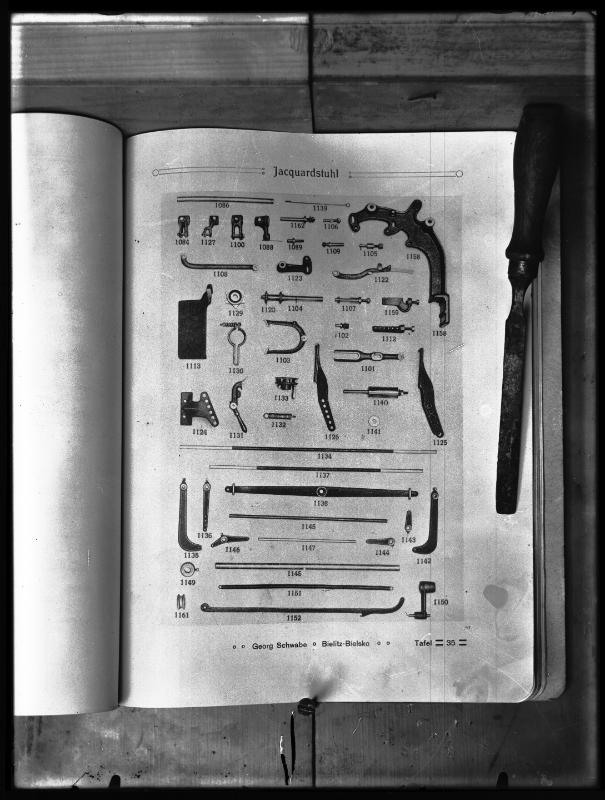 Jacquardstuhl
1086 1139
1084 1127 1100 1088 1162 1106
1089 1109 1105 1158
1108 1123 1122
1129 1120 1104 1107 1159
1158
1102 1112
1113 1130 1103 1101
1133 1140
1124 1131 1132 1126 1141 1125
1134
1137
1138
1136
1145 1143
1135 1146 1147 1144 1142
1149
1151
1161 1152 1150
o o Georg Schwabe o Bielitz-Bielsko o o Tafel = 35 =